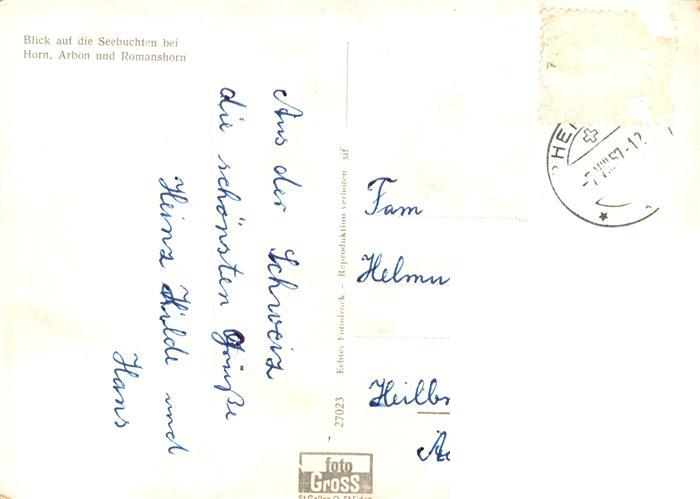 Blick auf die Seebuchten bei
Horn, Arbon und Romanshorn
Aus der Schweiz
die schönsten Grüße
Heinz Hilde und
Hans
27023 Echter Fotodruck – Reproduktion verboten sif
Fam
Helmu
Heilb
7.VIII.57-12
foto
GROSS
St.Gallen O